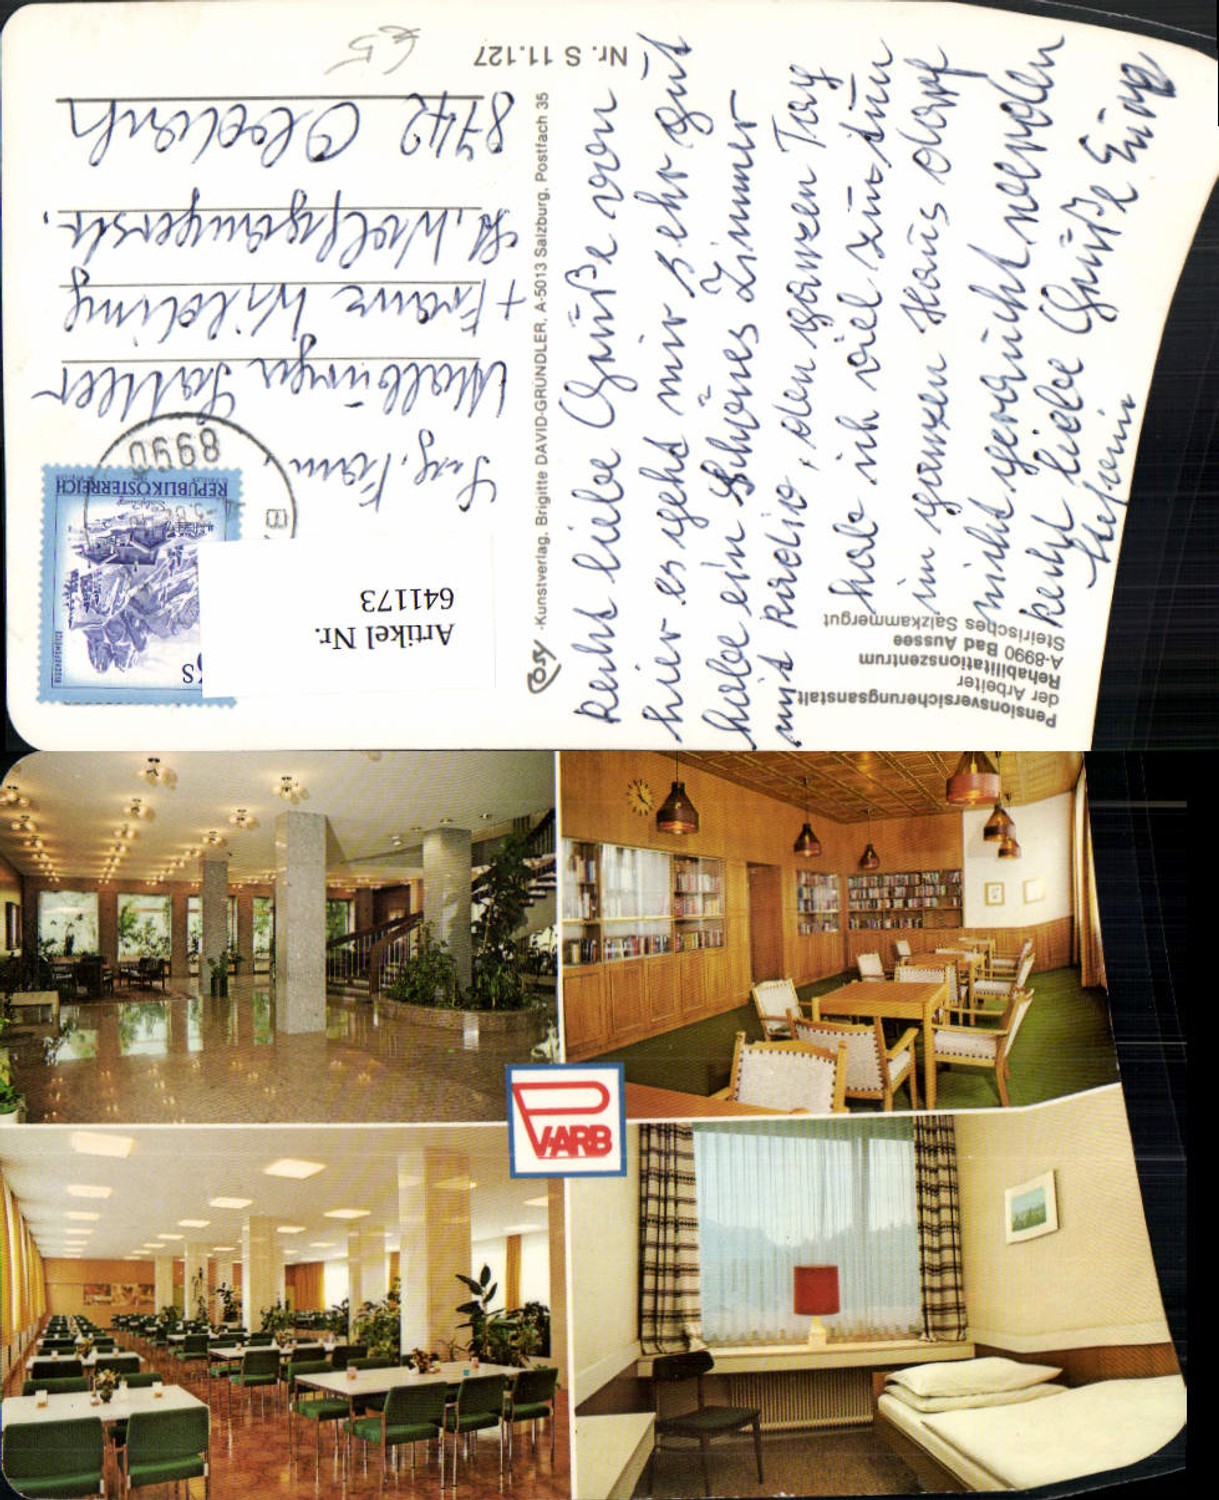 Nr. S 11.127
€5
Kunstverlag, Brigitte DAVID-GRÜNDLER, A-5013 Salzburg, Postfach 35
Cosy
Pensionsversicherungsanstalt
der Arbeiter
Rehabilitationszentrum
A-8990 Bad Aussee
Steirisches Salzkammergut
Recht liebe Grüße von
hier es geht mir sehr gut
habe ein schönes Zimmer
mit Radio, den ganzen Tag
habe ich viel zu tun
im ganzen Haus darf
nicht geraucht werden
Recht liebe Grüße Eure
Stefanie
REPUBLIK ÖSTERREICH
8990
Artikel Nr.
641173
Fam.
Walburga Sattler
+ Franz Wilding
St. Wolfgangerstr.
8742 Obdach
PVARB